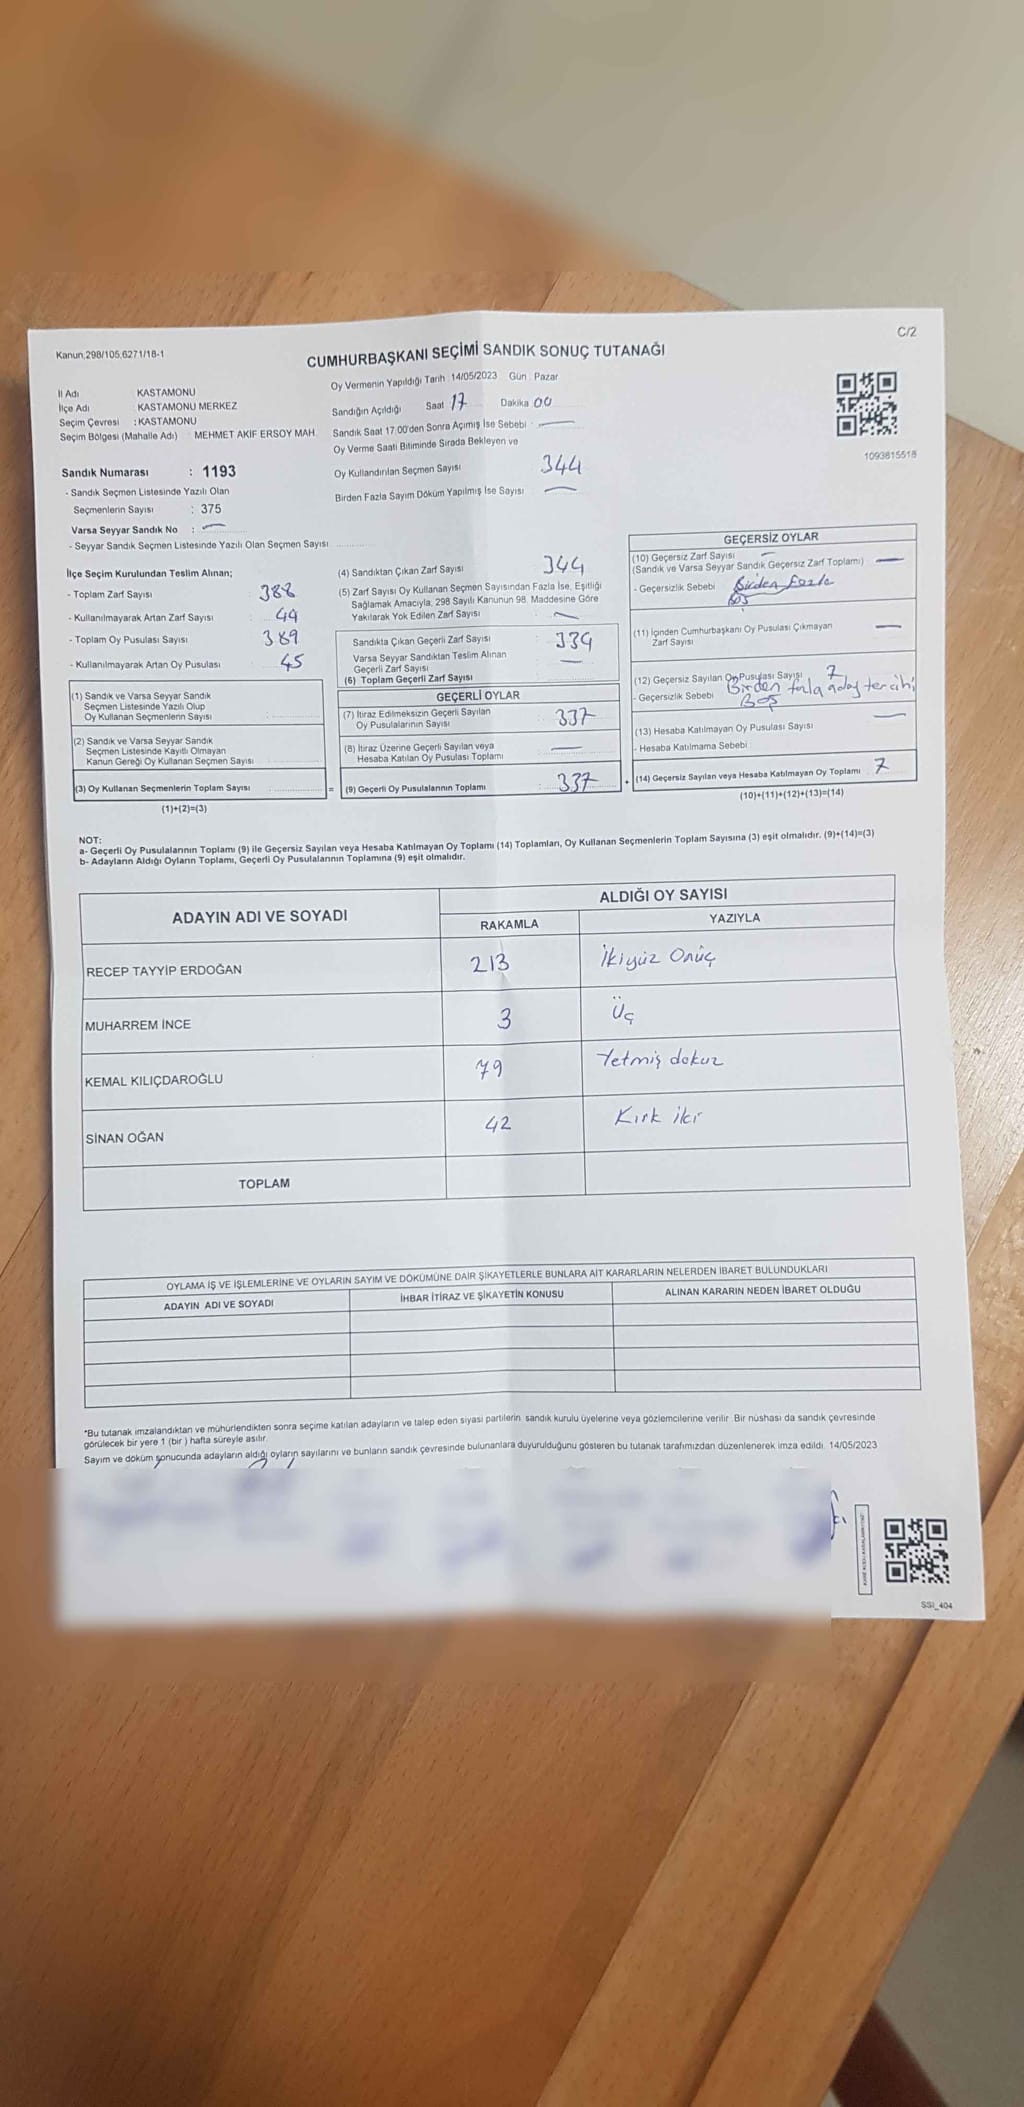 C/2
Kanun,298/105,6271/18-1
CUMHURBAŞKANI SEÇİMİ SANDIK SONUÇ TUTANAĞI
İl Adı : KASTAMONU
İlçe Adı : KASTAMONU MERKEZ
Seçim Çevresi : KASTAMONU
Seçim Bölgesi (Mahalle Adı) : MEHMET AKİF ERSOY MAH.
Sandık Numarası : 1193
- Sandık Seçmen Listesinde Yazılı Olan
Seçmenlerin Sayısı : 375
Varsa Seyyar Sandık No : —
- Seyyar Sandık Seçmen Listesinde Yazılı Olan Seçmen Sayısı
Oy Vermenin Yapıldığı Tarih : 14/05/2023 Gün : Pazar
Sandığın Açıldığı Saat 17 Dakika 00
Sandık Saat 17.00'den Sonra Açılmış İse Sebebi : —
Oy Verme Saati Bitiminde Sırada Bekleyen ve
Oy Kullandırılan Seçmen Sayısı 344
Birden Fazla Sayım Döküm Yapılmış İse Sayısı —
1093815518
İlçe Seçim Kurulundan Teslim Alınan;
- Toplam Zarf Sayısı : 388
- Kullanılmayarak Artan Zarf Sayısı : 44
- Toplam Oy Pusulası Sayısı : 389
- Kullanılmayarak Artan Oy Pusulası : 45
(1) Sandık ve Varsa Seyyar Sandık
Seçmen Listesinde Yazılı Olup
Oy Kullanan Seçmenlerin Sayısı :
(2) Sandık ve Varsa Seyyar Sandık
Seçmen Listesinde Kayıtlı Olmayan
Kanun Gereği Oy Kullanan Seçmen Sayısı :
(3) Oy Kullanan Seçmenlerin Toplam Sayısı : =
(1)+(2)=(3)
(4) Sandıktan Çıkan Zarf Sayısı : 344
(5) Zarf Sayısı Oy Kullanan Seçmen Sayısından Fazla İse, Eşitliği
Sağlamak Amacıyla, 298 Sayılı Kanunun 98. Maddesine Göre
Yakılarak Yok Edilen Zarf Sayısı : —
Sandıkta Çıkan Geçerli Zarf Sayısı : 334
Varsa Seyyar Sandıktan Teslim Alınan
Geçerli Zarf Sayısı : —
(6) Toplam Geçerli Zarf Sayısı
GEÇERLİ OYLAR
(7) İtiraz Edilmeksizin Geçerli Sayılan
Oy Pusulalarının Sayısı : 337
(8) İtiraz Üzerine Geçerli Sayılan veya
Hesaba Katılan Oy Pusulası Toplamı : —
(9) Geçerli Oy Pusulalarının Toplamı : 337 +
GEÇERSİZ OYLAR
(10) Geçersiz Zarf Sayısı —
(Sandık ve Varsa Seyyar Sandık Geçersiz Zarf Toplamı) —
- Geçersizlik Sebebi : Birden fazla
Boş
(11) İçinden Cumhurbaşkanı Oy Pusulası Çıkmayan
Zarf Sayısı —
(12) Geçersiz Sayılan Oy Pusulası Sayısı 7
- Geçersizlik Sebebi Birden fazla aday tercihi
Boş
(13) Hesaba Katılmayan Oy Pusulası Sayısı —
- Hesaba Katılmama Sebebi :
(14) Geçersiz Sayılan veya Hesaba Katılmayan Oy Toplamı 7
(10)+(11)+(12)+(13)=(14)
NOT:
a- Geçerli Oy Pusulalarının Toplamı (9) ile Geçersiz Sayılan veya Hesaba Katılmayan Oy Toplamı (14) Toplamları, Oy Kullanan Seçmenlerin Toplam Sayısına (3) eşit olmalıdır. (9)+(14)=(3)
b- Adayların Aldığı Oyların Toplamı, Geçerli Oy Pusulalarının Toplamına (9) eşit olmalıdır.
ADAYIN ADI VE SOYADI
ALDIĞI OY SAYISI
RAKAMLA YAZIYLA
RECEP TAYYİP ERDOĞAN 213 İkiyüz Onüç
MUHARREM İNCE 3 Üç
KEMAL KILIÇDAROĞLU 79 Yetmiş dokuz
SİNAN OĞAN 42 Kırk iki
TOPLAM
OYLAMA İŞ VE İŞLEMLERİNE VE OYLARIN SAYIM VE DÖKÜMÜNE DAİR ŞİKAYETLERLE BUNLARA AİT KARARLARIN NELERDEN İBARET BULUNDUKLARI
ADAYIN ADI VE SOYADI İHBAR İTİRAZ VE ŞİKAYETİN KONUSU ALINAN KARARIN NEDEN İBARET OLDUĞU
*Bu tutanak imzalandıktan ve mühürlendikten sonra seçime katılan adayların ve talep eden siyasi partilerin sandık kurulu üyelerine veya gözlemcilerine verilir. Bir nüshası da sandık çevresinde
görülecek bir yere 1 (bir) hafta süreyle asılır.
Sayım ve döküm sonucunda adayların aldığı oyların sayılarını ve bunların sandık çevresinde bulunanlara duyurulduğunu gösteren bu tutanak tarafımızdan düzenlenerek imza edildi. 14/05/2023
SSI_404